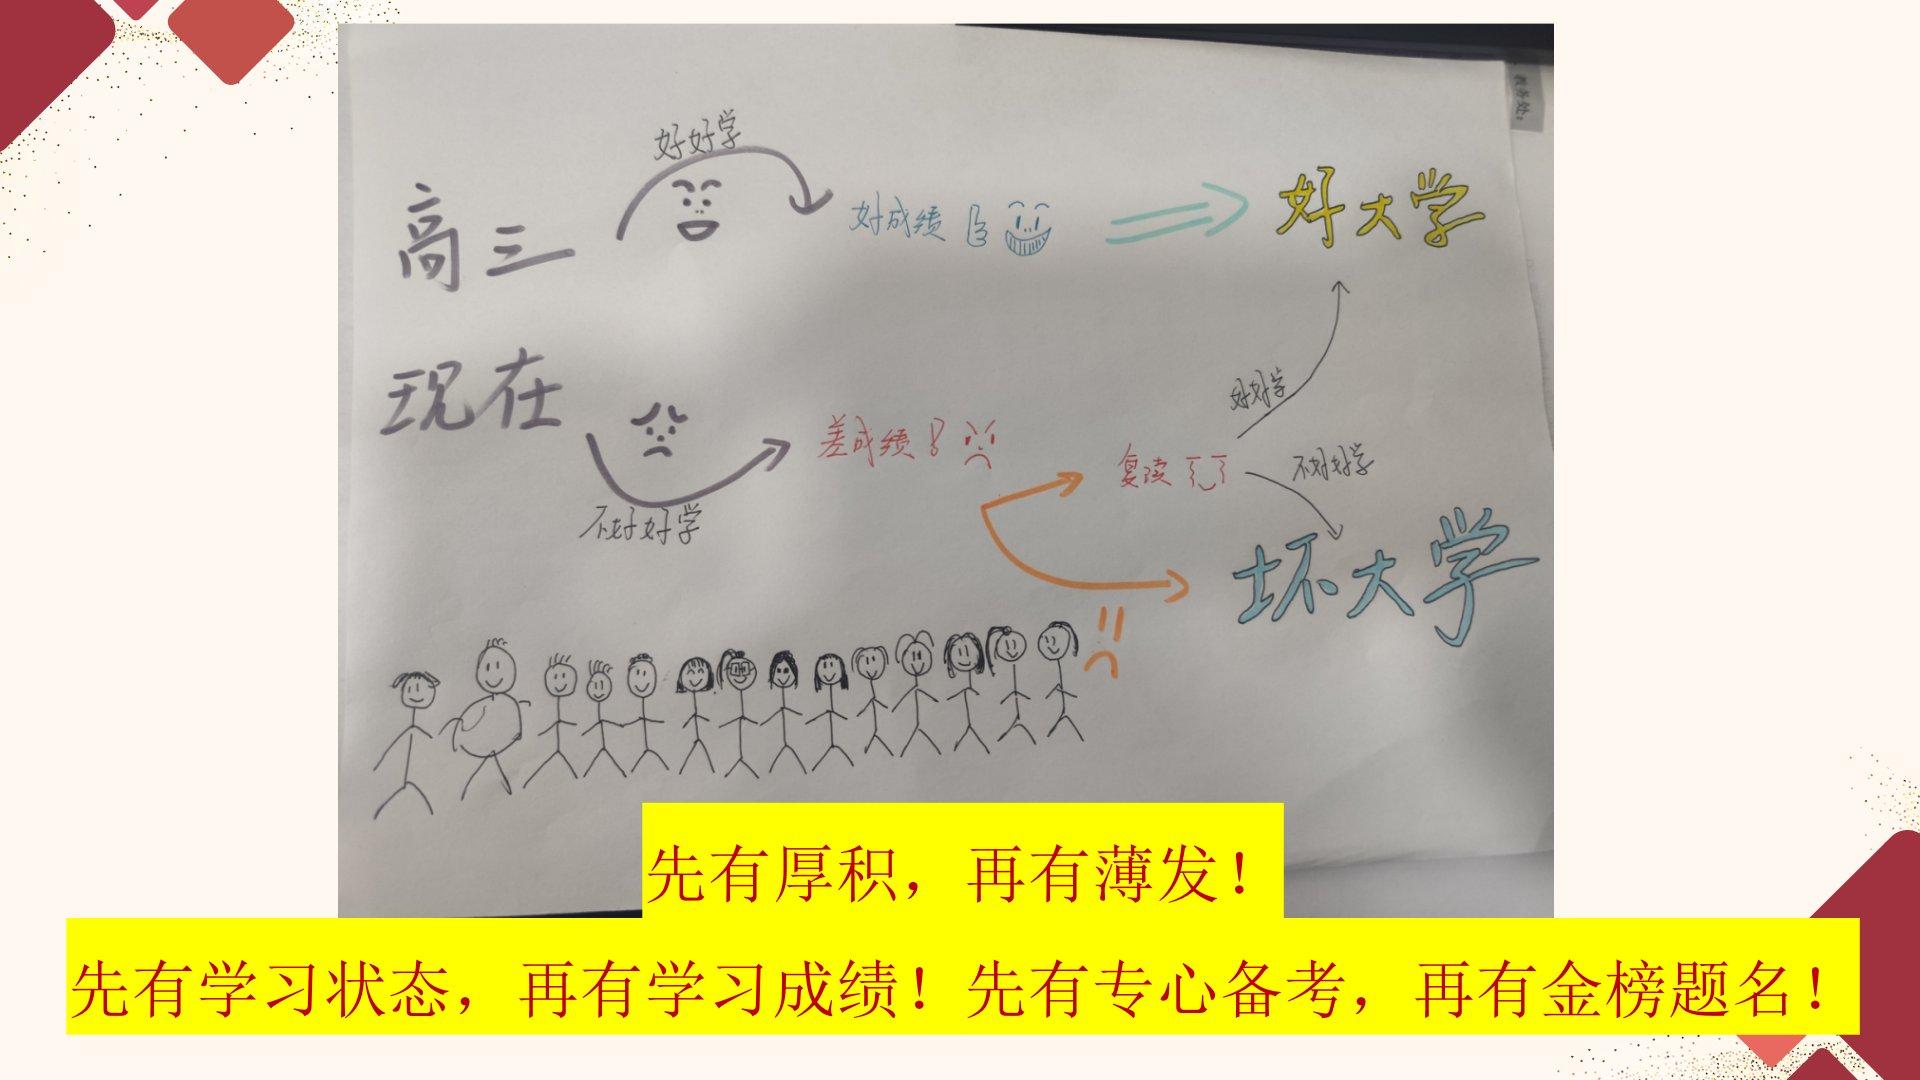 教务处:
好好学
高三
好成绩
好大学
现在
好好学
差成绩!
复读
不好好学
不好好学
坏大学
先有厚积，再有薄发！
先有学习状态，再有学习成绩！先有专心备考，再有金榜题名！